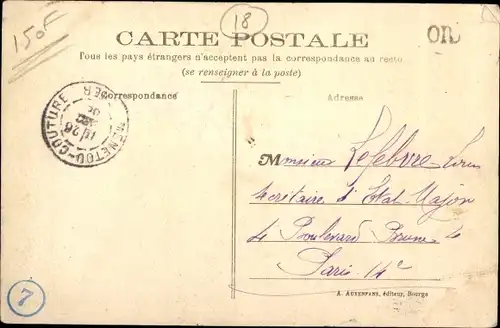 150F
18
OR
CARTE POSTALE
Tous les pays étrangers n'acceptent pas la correspondance au recto
(se renseigner à la poste)
Correspondance
Adresse
MENETOU-COUTURE CHER
Monsieur Lefebvre
Secrétaire d'Etat-Major
4 Boulevard Brune 4
Paris 14e
A. AUXENFANS, éditeur, Bourges
7